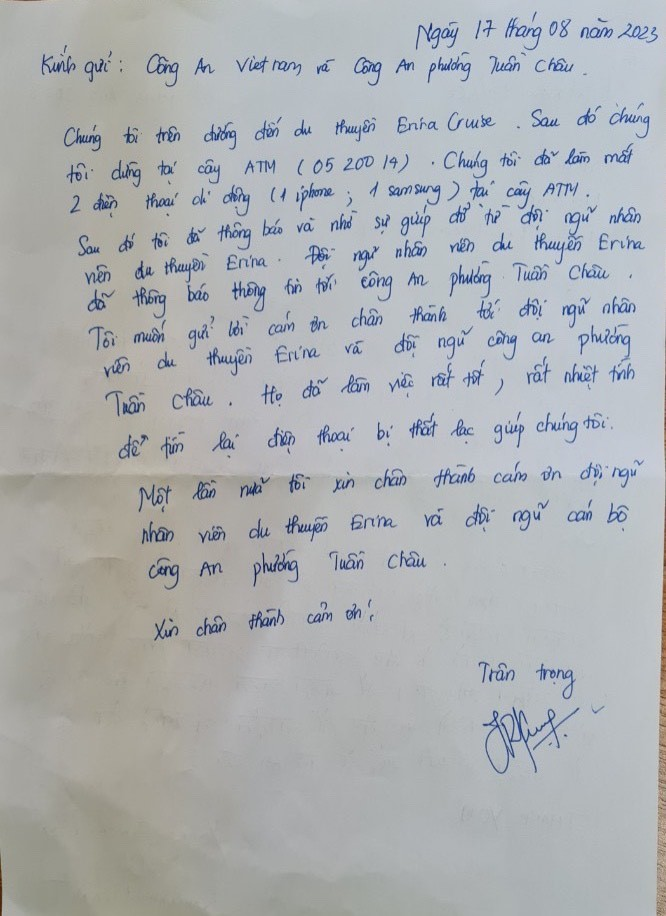 Ngày 17 tháng 08 năm 2023
Kính gửi: Công An Vietnam và Công An phường Tuần Châu.
Chúng tôi trên đường đến du thuyền Erina Cruise. Sau đó chúng
tôi dừng tại cây ATM (05 200 14). Chúng tôi đã làm mất
2 điện thoại di động (1 iphone; 1 samsung) tại cây ATM.
Sau đó tôi đã thông báo và nhờ sự giúp đỡ từ đội ngũ nhân
viên du thuyền Erina. Đội ngũ nhân viên du thuyền Erina
đã thông báo thông tin tới công An phường Tuần Châu.
Tôi muốn gửi lời cảm ơn chân thành tới đội ngũ nhân
viên du thuyền Erina và đội ngũ công an phường
Tuần Châu. Họ đã làm việc rất tốt, rất nhiệt tình
để tìm lại điện thoại bị thất lạc giúp chúng tôi.
Một lần nữa tôi xin chân thành cảm ơn đội ngũ
nhân viên du thuyền Erina và đội ngũ cán bộ
công An phường Tuần Châu.
Xin chân thành cảm ơn!
Trân trọng